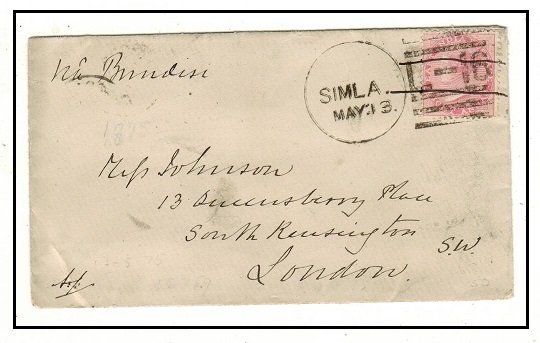 Via Brindisi
SIMLA.
MAY 13
L-16
Miss Johnson
13 Queensberry Place
South Kensington
S.W.
London.